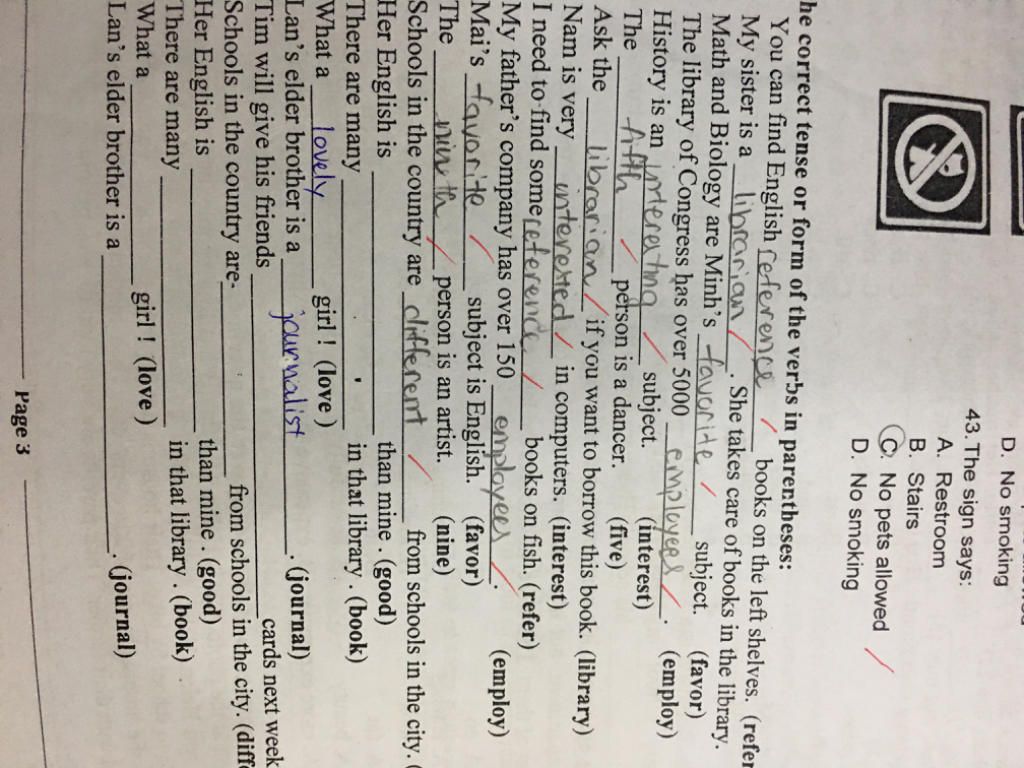 D. No smoking
43. The sign says:
A. Restroom
B. Stairs
C. No pets allowed
D. No smoking
he correct tense or form of the verbs in parentheses:
You can find English reference books on the left shelves. (refer
My sister is a librarian . She takes care of books in the library.
Math and Biology are Minh's favorite subject. (favor)
The library of Congress has over 5000 employees . (employ)
History is an interesting subject. (interest)
The fifth person is a dancer. (five)
Ask the librarian if you want to borrow this book. (library)
Nam is very interested in computers. (interest)
I need to find some reference books on fish. (refer)
My father's company has over 150 employees . (employ)
Mai's favorite subject is English. (favor)
The ninth person is an artist. (nine)
Schools in the country are different from schools in the city. (
Her English is ______ than mine . (good)
There are many ______ in that library . (book)
What a lovely girl ! (love )
Lan's elder brother is a journalist . (journal)
Tim will give his friends ______ cards next week
Schools in the country are- ______ from schools in the city. (diffe
Her English is ______ than mine . (good)
There are many ______ in that library . (book)
What a ______ girl ! (love )
Lan's elder brother is a ______ . (journal)
Page 3